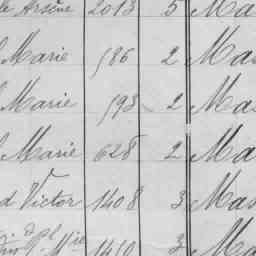 Arsène 2013 5 Ma
Marie 586 2 Mas
Marie 593 2 Mas
Marie 628 2 Ma
d Victor 1408 3 Mas
1410 3 Ma